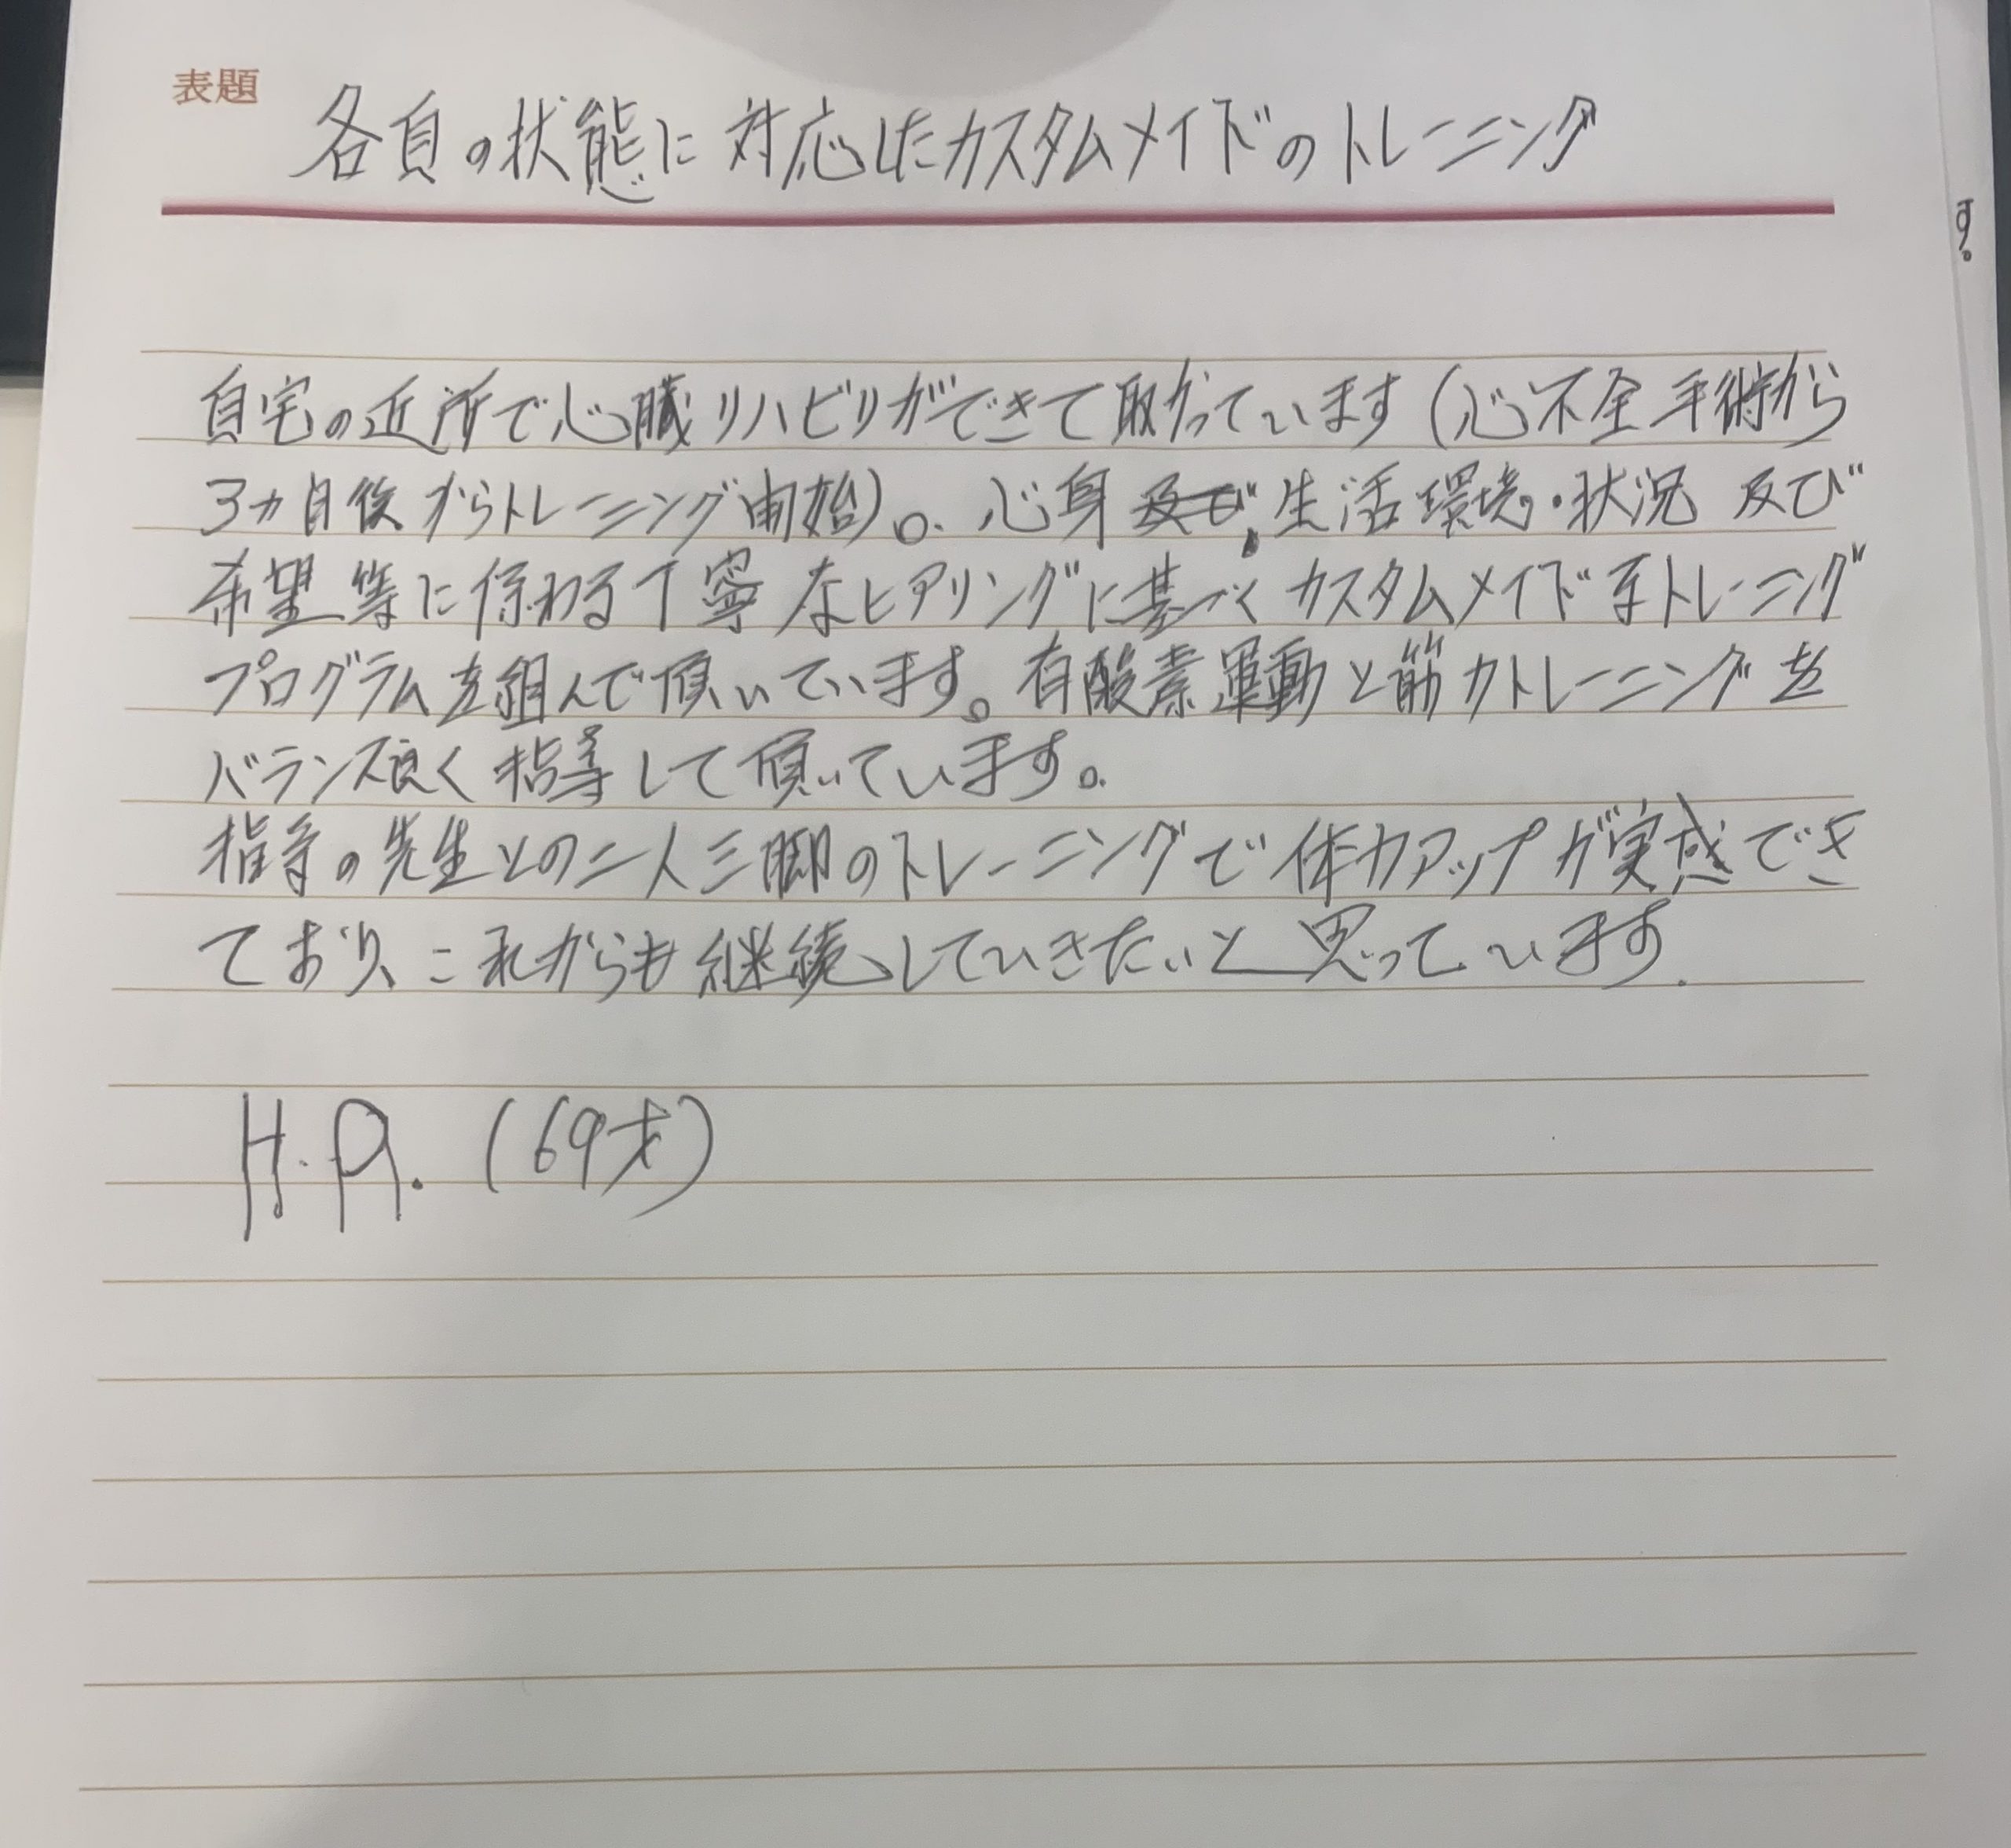 表題
各自の状態に対応したカスタムメイドのトレーニング
自宅の近所で心臓リハビリができて助かっています(心不全手術から
3ヵ月後からトレーニング開始)。心身、生活環境・状況 及び
希望等に係わる丁寧なヒアリングに基づくカスタムメイドなトレーニング
プログラムを組んで頂いています。有酸素運動と筋力トレーニングを
バランス良く指導して頂いています。
指導の先生との二人三脚のトレーニングで体力アップが実感でき
ており、これからも継続していきたいと思っています.
H.A. (69才)
す。